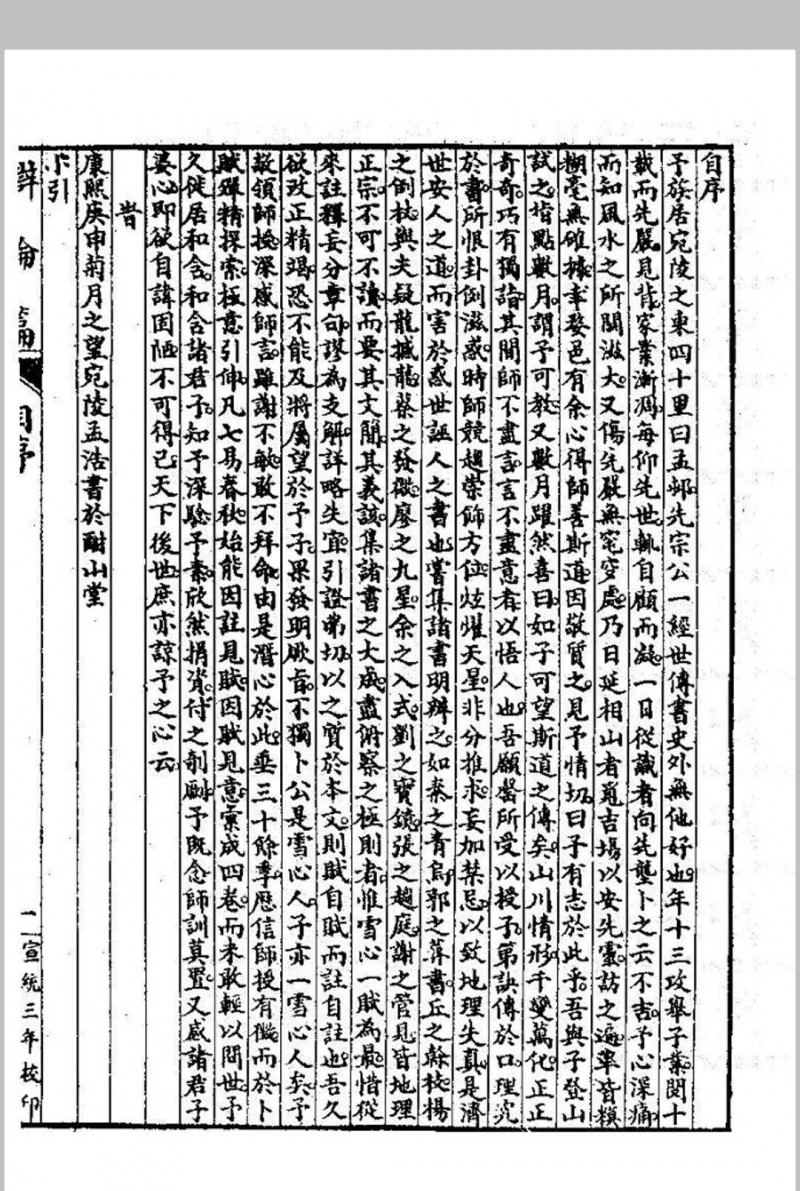 自序
予族居宛陵之東四十里曰孟邨先宗公一經世傳書史外無他好也年十三攻舉子業閱十
載而先嚴見背家業漸凋每仰先世執自顧而凝一日從識者向先壟卜之云不吉予心深痛
而知風水之所關滋大又傷先嚴無窀穸處乃日延相山者覓吉場以安先靈訪之遍率皆糢
糊毫無確據婺邑有余心得師善斯道因敬質之見予情切曰子有志於此乎吾與子登山
試之指點數月謂予可教又數月躍然喜曰如子可望斯道之傳矣山川情形千變萬化正正
奇奇巧有獨詣其間師不盡言言不盡意者以悟人也吾願罄所受以授子第訣傳於口理究
於書所恨卦例滋惑時師競趨崇飾方位炫耀天星非分推求妄加禁忌以致地理失真是濟
世安人之道而害於惑世誣人之書也嘗集諸書明辨之如秦之青烏郭之葬書丘之幹枝楊
之倒杖與夫疑龍撼龍蔡之發微廖之九星余之入式劉之寶鏡張之趨庭謝之管見皆地理
正宗不可不讀而要其文簡其義該集諸書之大成盡俯察之極則者惟雪心一賦為最惜從
來註釋妄分章句謬為支解詳略失宜引證弗切以之質於本文則賦自賦而註自註也吾久
欲改正精竭恐不能及將屬望於予子果發明厥旨不獨卜公是雪心人子亦一雪心人矣予
敬領師授深感師言雖謝不敏敢不拜命由是潛心於此垂三十餘季歷信師授有徵而於卜
賦躍精探索極意引伸凡七易春秋始能因註見賦因賦見意彙成四卷而未敢輕以問世予
久徙居和含和含諸君子知予深騐予素欣然捐資付之剞劂予既念師訓莫置又感諸君子
婆心即欲自諱固陋不可得已天下後世庶亦諒予之心云
旹
康熙庚申菊月之望宛陵孟浩書於酣山堂
小引
辯論篇 自序 二 宣統三年校印